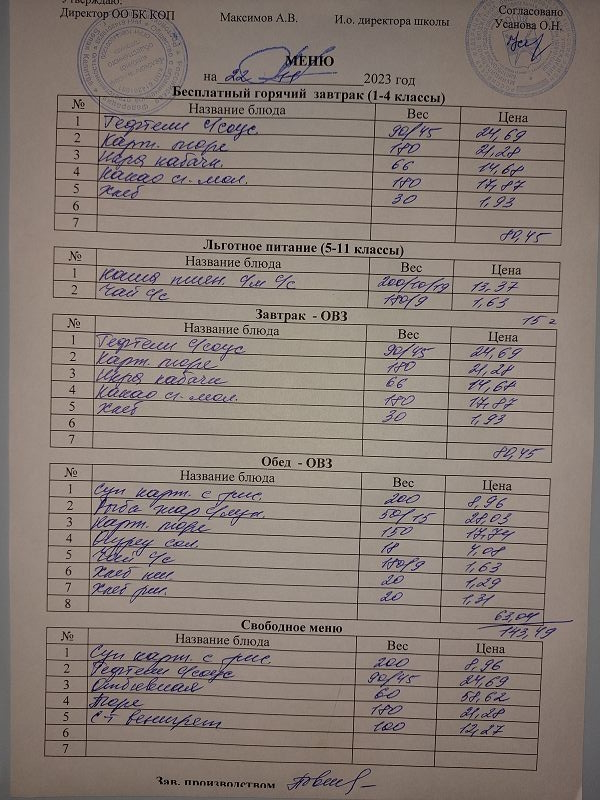 Утверждаю:
Директор ОО БК КОП Максимов А.В. И.о. директора школы Согласовано
Усанова О.Н.
МЕНЮ
на 22 11 2023 год
Бесплатный горячий завтрак (1-4 классы)
№ Название блюда Вес Цена
1 Тефтели с/соус. 90/45 24,69
2 Карт. пюре 180 21,28
3 Икра кабачк. 66 14,68
4 Какао сг. мол. 180 17,87
5 Хлеб 30 1,93
6
7 80,45
Льготное питание (5-11 классы)
№ Название блюда Вес Цена
1 Каша пшен. с/м с/с 13,37
2 Чай с/с 180/9 1,63
15
Завтрак - ОВЗ
№ Название блюда Вес Цена
1 Тефтели с/соус 90/45 24,69
2 Карт. пюре 180 21,28
3 Икра кабачк 66 14,68
4 Какао сг. мол. 180 17,87
5 Хлеб 30 1,93
6
7 80,45
Обед - ОВЗ
№ Название блюда Вес Цена
1 Суп карт. с рис. 200 8,96
2 Рыба жар с/лук. 50/15 28,03
3 Карт. пюре 150 17,74
4 Огурец сол. 18 4,08
5 Чай с/с 180/9 1,63
6 Хлеб пш. 20 1,29
7 Хлеб рж. 20 1,31
8 63,04
143,49
Свободное меню
№ Название блюда Вес Цена
1 Суп карт. с рис. 200 8,96
2 Тефтели с/соус 90/45 24,69
3 Отбивная 60 58,62
4 Пюре 180 21,28
5 С-т венигрет 100 12,27
6
7
Зав. производством